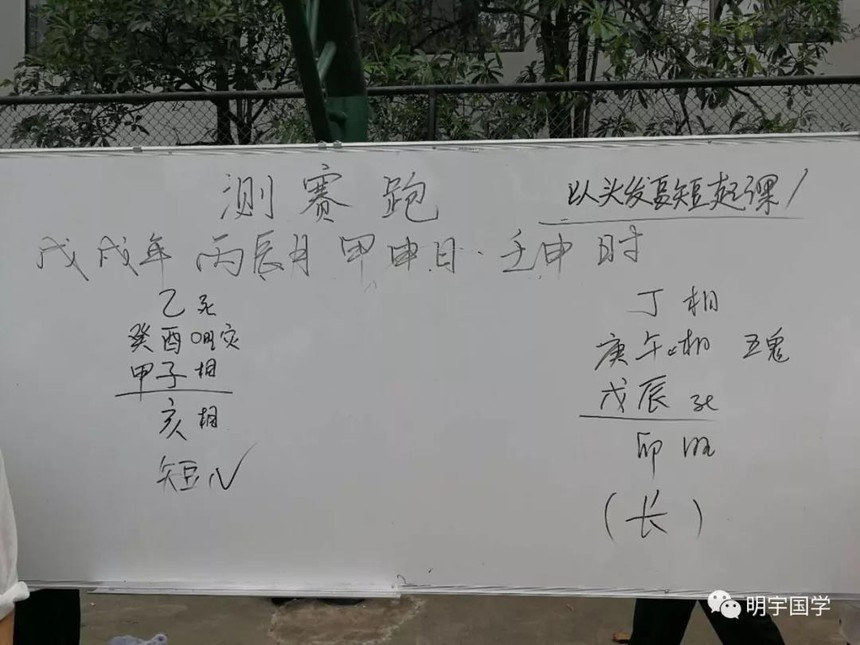 测赛跑
以头发长短起课
戊戌年 丙辰月 甲申日·壬申时
乙死
癸酉旺灾
甲子相
亥相
短√
丁相
庚午相 五鬼
戊辰死
卯旺
(长)
明宇国学